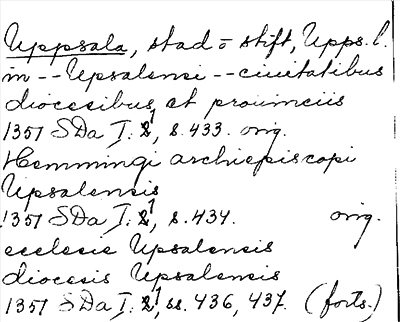 Uppsala, stad o stift, Upps. l.
in -- Upsalensi -- ciuitatibus
diocesibus et prouinciis
1351 SDa I: 2¹, s. 433. orig.
Hemmingi archiepiscopi
Upsalensis
1351 SDa I: 2¹, s. 434. orig.
ecclesie Upsalensis
diocesis Upsalensis
1351 SDa I: 2¹, ss. 436, 437. (forts.)